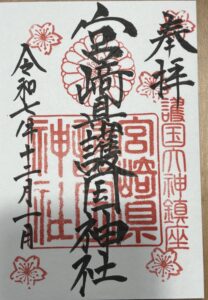 奉拝
護国大神鎮座
宮崎県護国神社
宮崎県
護国
神社
令和七年十一月一日